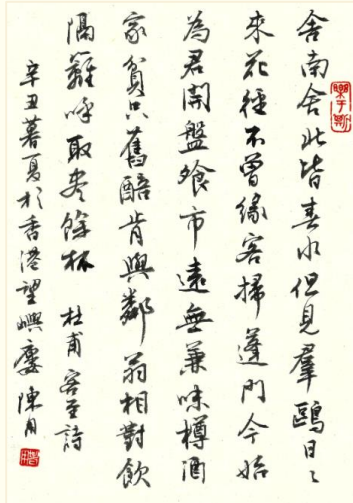 樂于斯
舍南舍北皆春水但見羣鷗日〻
來花徑不曾緣客掃蓬門今始
為君開盤飧市遠無兼味樽酒
家貧只舊醅肯與鄰翁相對飲
隔籬呼取尽餘杯 杜甫 客至詩
辛丑暮夏於香港望嶼廔 陳用